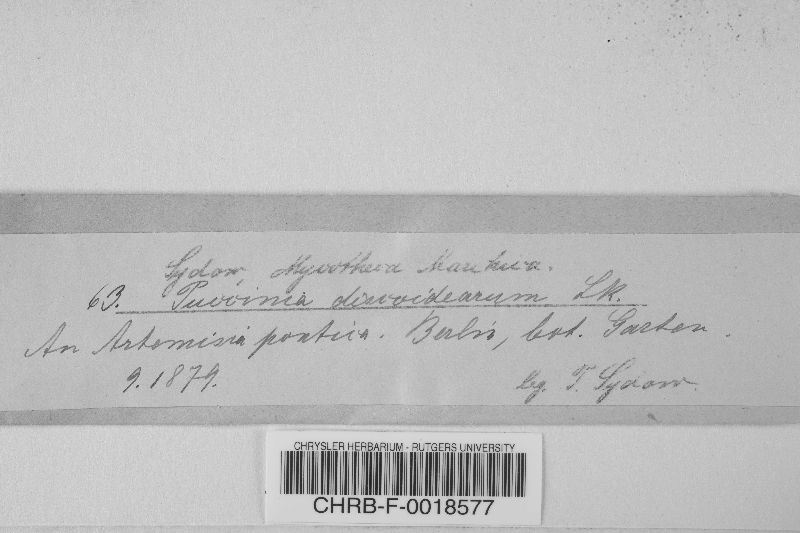 Sydow, Mycotheca Marchica.
63. Puccinia discoidearum Lk.
An Artemisia pontica. Berlin, bot. Garten.
9.1879. leg. P. Sydow.
CHRYSLER HERBARIUM - RUTGERS UNIVERSITY
CHRB-F-0018577